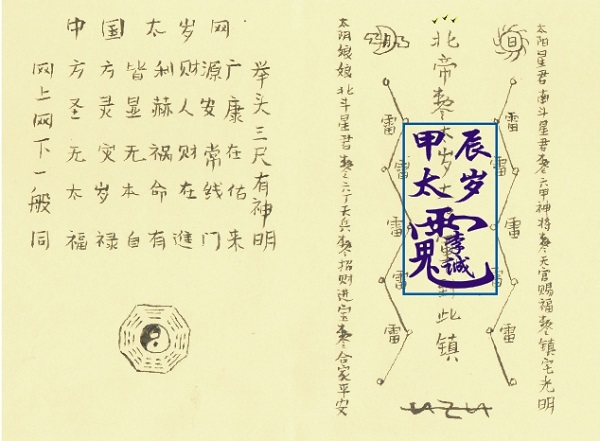 中国太岁网
举头三尺有神明
方方皆利财源广
圣灵显赫人安康
无灾无祸财常在
太岁本命在线估
福禄自有進门来
网上网下一般同
太阳星君南斗星君勅六甲神将勅天官赐福勅镇宅光明
日
月
北帝勅太岁到此镇
雷
雷
雷
雷
雷
雷
雷
雷
雷
雷
甲辰
太岁
李诚
太阴娘娘北斗星君勅六丁天兵勅招财进宝勅合家平安